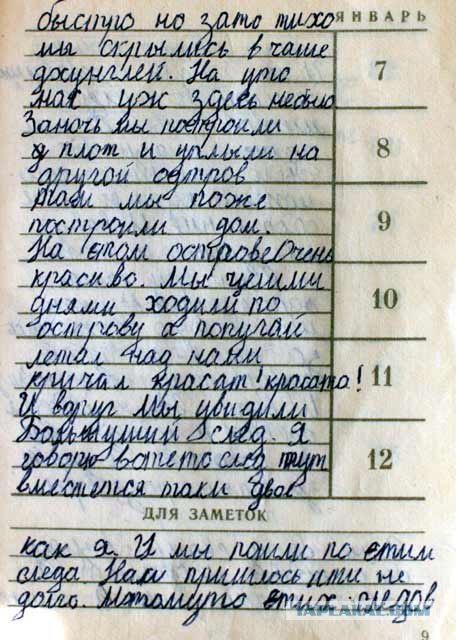 быстро но зато тихо
ЯНВАРЬ
мы скрылись в чаше
7
джунглей. На утро
нас уж здесь небыло
Заночь мы построили
8
плот и уплыли на
другой остров
там мы тоже
9
построили дом.
На етом острове Очень
красиво. Мы целими
10
днями ходили по
острову а попугай
летал над нами
11
кричал красат! красата!
И вдруг мы увидили
Большущий след. Я
12
говорю вотето след тут
вместется таки двое
ДЛЯ ЗАМЕТОК
как я. И мы пошли по етим
следа Нам пришлось ити не
долго. Матомуто етих следов
YAPLAKAL.COM
9